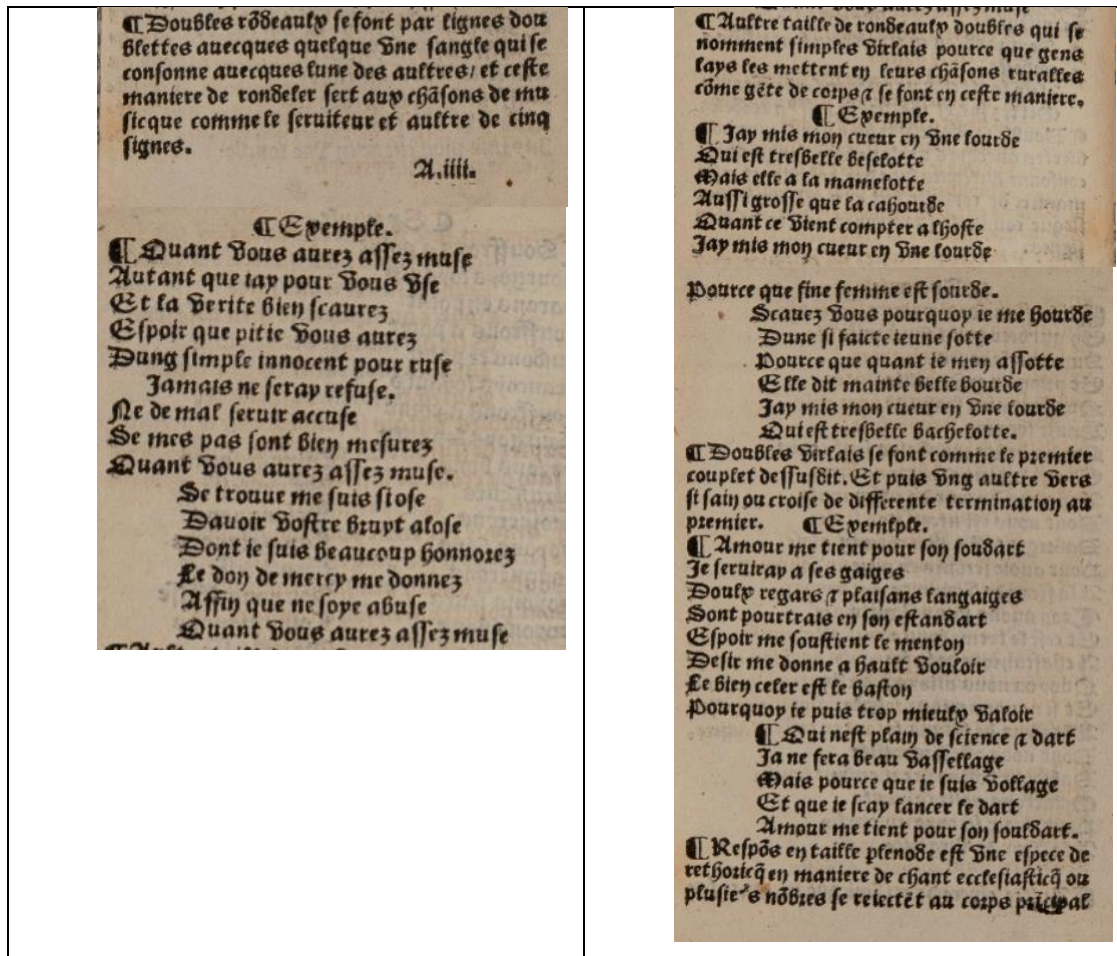 ¶Doubles rõdeaulx se font par lignes dou
blettes auecques quelque vne sangle qui se
consonne auecques lune des aultres/ et ceste
maniere de rondeler sert aux chãsons de mu
sicque comme le seruiteur et aultre de cinq
signes.
A.iiii.
¶Exemple.
¶Quant vous aurez assez muse
Autant que iay pour vous vse
Et la verite bien scaurez
Espoir que pitie vous aurez
Dung simple innocent pour ruse
Jamais ne seray refuse.
Ne de mal seruir accuse
Se mes pas sont bien mesurez
Quant vous aurez assez muse.
Se trouue me suis si ose
Dauoir vostre bruyt alose
Dont ie suis beaucoup honnorez
Le don de mercy me donnez
Affin que ne soye abuse
Quant vous aurez assez muse
¶Aultre taille de rondeaulx doubles qui se
nomment simples virlais pource que gens
lays les mettent en leurs chãsons ruralles
cõme gẽte de corps ⁊ se font en ceste maniere.
¶Exemple.
¶Jay mis mon cueur en vne lourde
Qui est tresbelle beselotte
Mais elle a la mamelotte
Aussi grosse que la cahourde
Quant ce vient compter a lhoste
Jay mis mon cueur en vne lourde
Pource que fine femme est sourde.
Scauez vous pourquoy ie me hourde
Dune si faicte ieune sotte
Pource que quant ie men assotte
Elle dit mainte belle bourde
Jay mis mon cueur en vne lourde
Qui est tresbelle bachelotte.
¶Doubles virlais se font comme le premier
couplet dessusdit. Et puis vng aultre vers
si sain ou croise de differente termination au
premier. ¶Exemlple.
¶Amour me tient pour son soudart
Je seruiray a ses gaiges
Doulx regars ⁊ plaisans langaiges
Sont pourtrais en son estandart
Espoir me soustient le menton
Desir me donne a hault vouloir
Le bien celer est le baston
Pourquoy ie puis trop mieulx valoir
¶Qui nest plain de science ⁊ dart
Ja ne fera beau vassellage
Mais pource que ie suis vollage
Et que ie scay lancer le dart
Amour me tient pour son souldart.
¶Respõs en taille plenode est vne espece de
rethoricq̃ en maniere de chant ecclesiasticq̃ ou
plusieꝰs nõbres se reiectẽt au corps prĩcipal